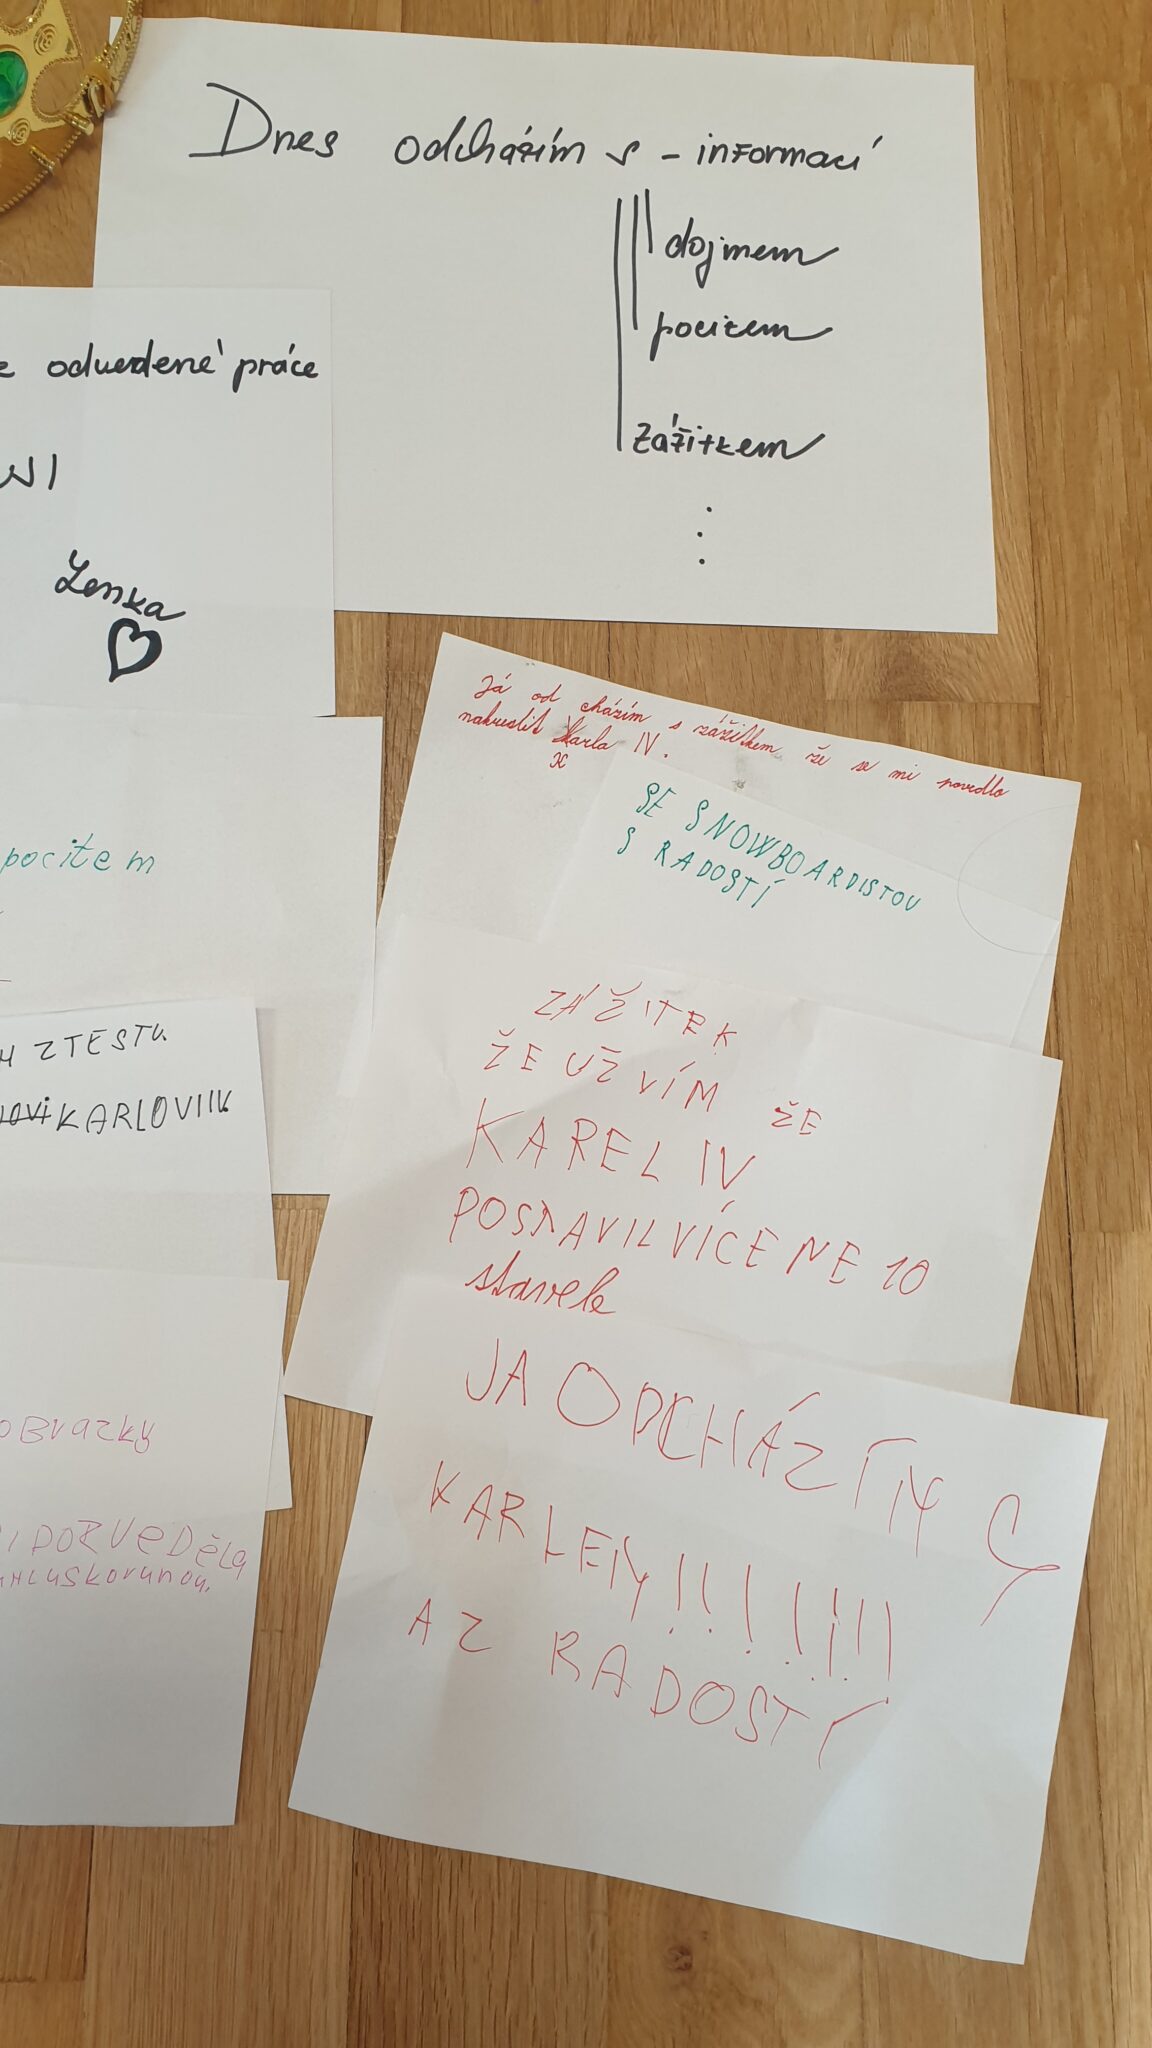 Dnes odcházím s - informací
dojmem
pocitem
zážitkem
odvedené práce
Lenka
Já od cházím s zážitkem že se mi povedlo
nakreslit Karla IV.
K
SE SNOWBOARDISTOU
S RADOSTÍ
pocitem
ZÁŽITEK
ŽE UŽ VÍM ŽE
KAREL IV
POSTAVIL VÍCE NE 10
stavele
Z TESTU.
KARLOVI IV.
JA ODCHÁZÍM S
KARLEM!!!!!!!
A Z RADOSTÍ
OBrazky
DOZVEDĚLA